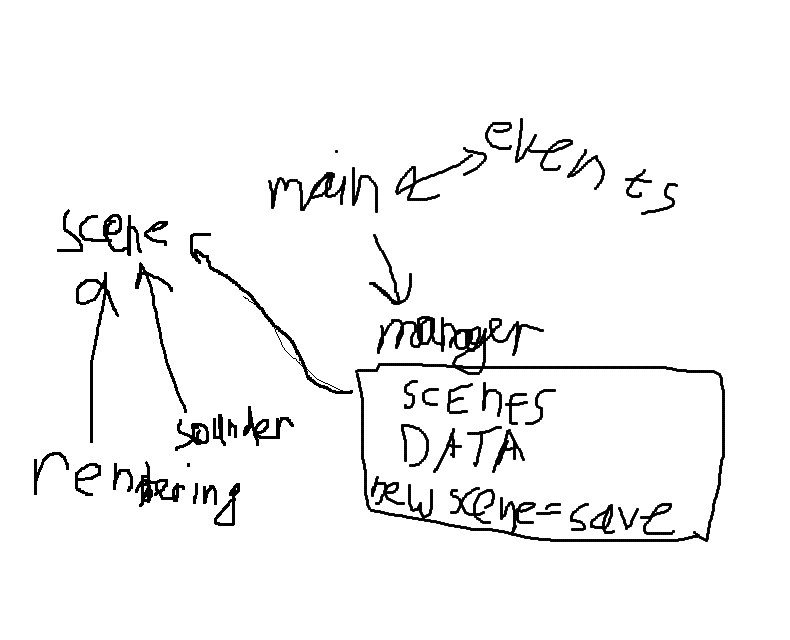 events
main
scene
manager
SCENES
DATA
new scene=save
sounder
rendering